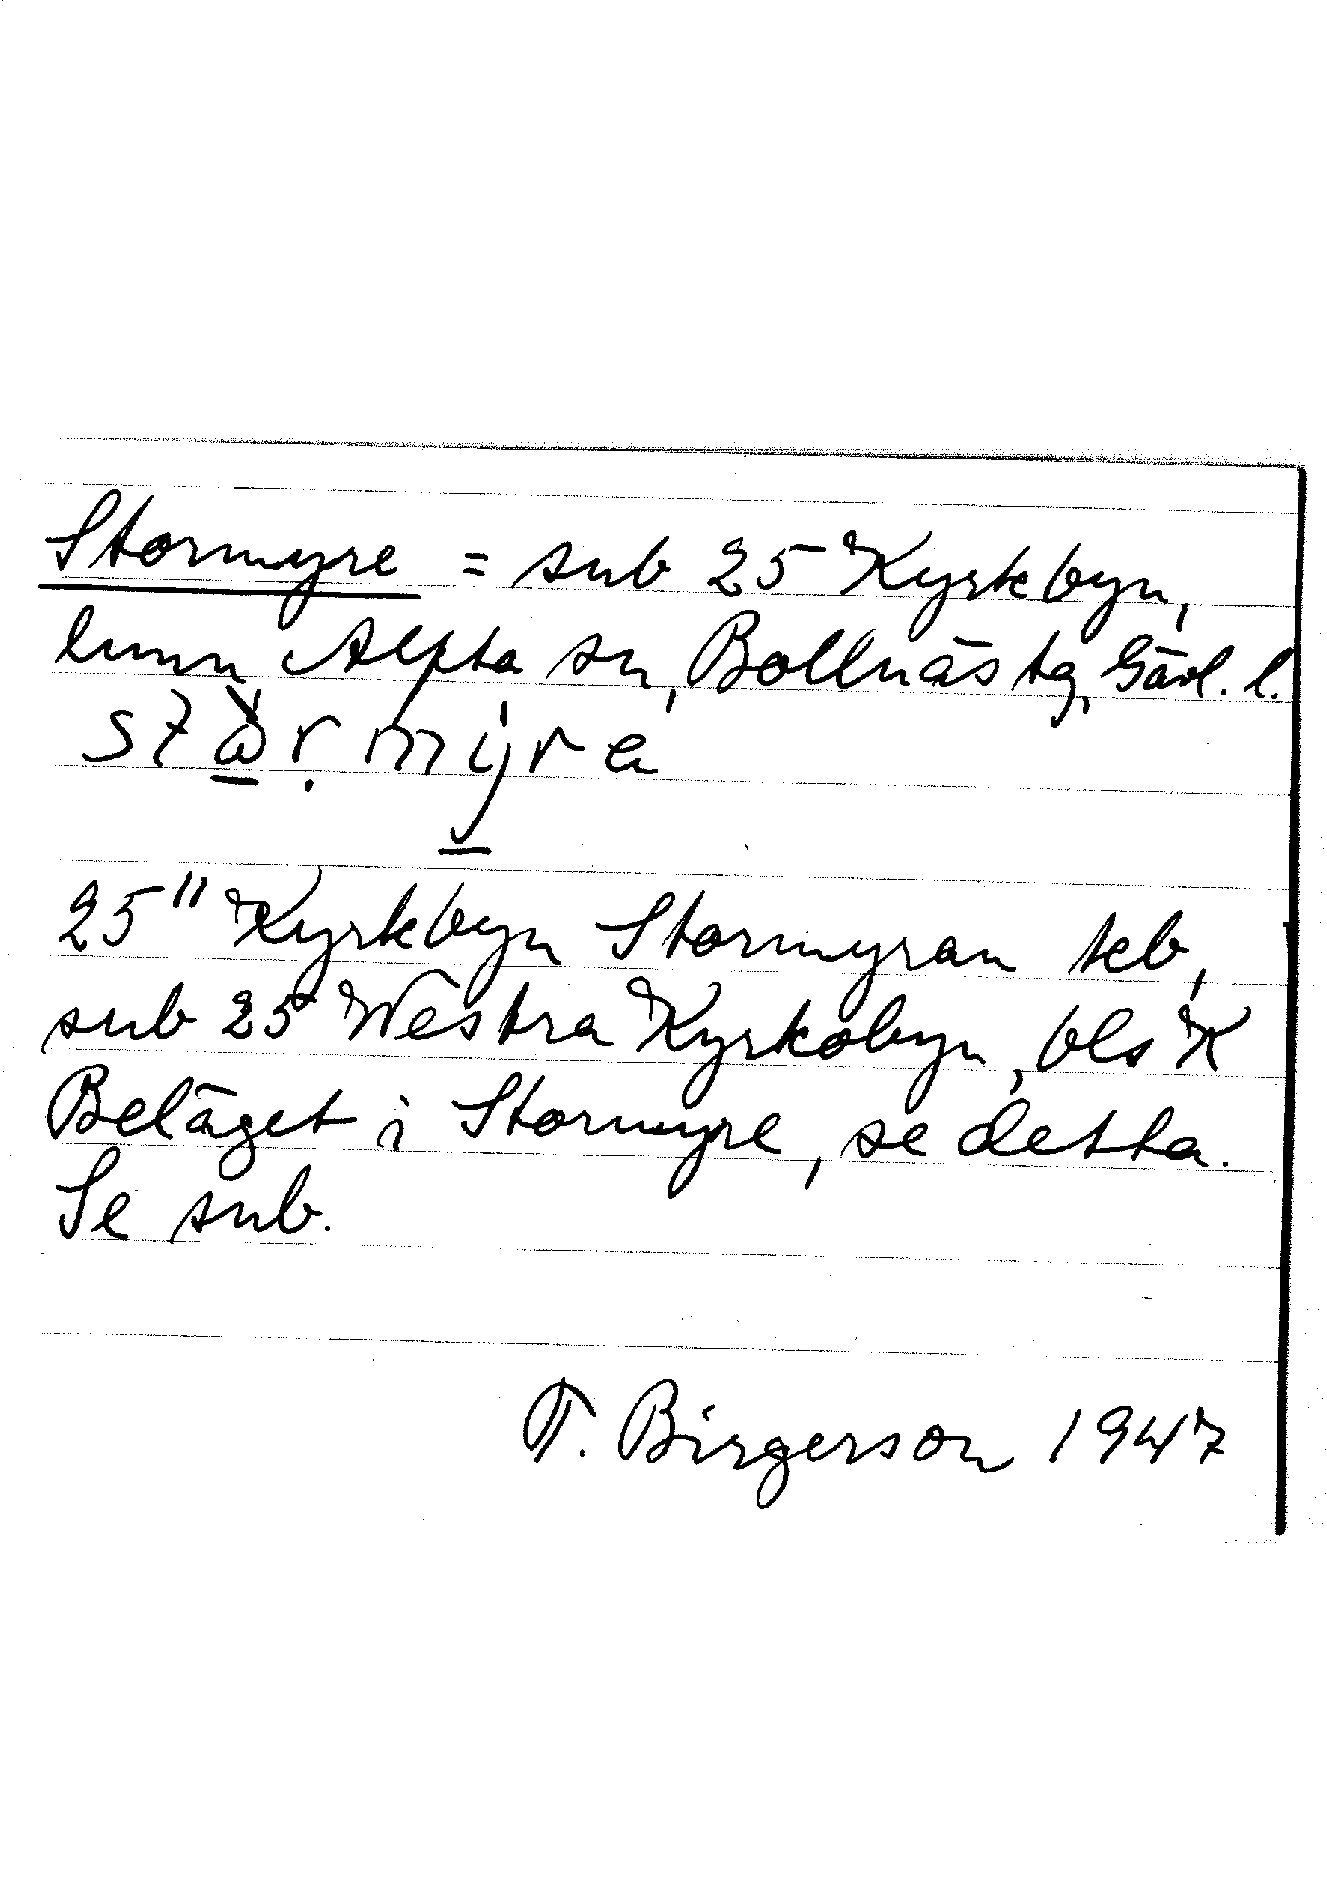 Stormyre = sub 25 Kyrkbyn,
lmmn Alfta sn, Bollnäs tg, Gävl. l.
25" Kyrkbyn Stormyran teb,
sub 25 Westra Kyrkobyn, bls K
Beläget i Stormyre, se detta.
Se sub.
T. Birgerson 1947